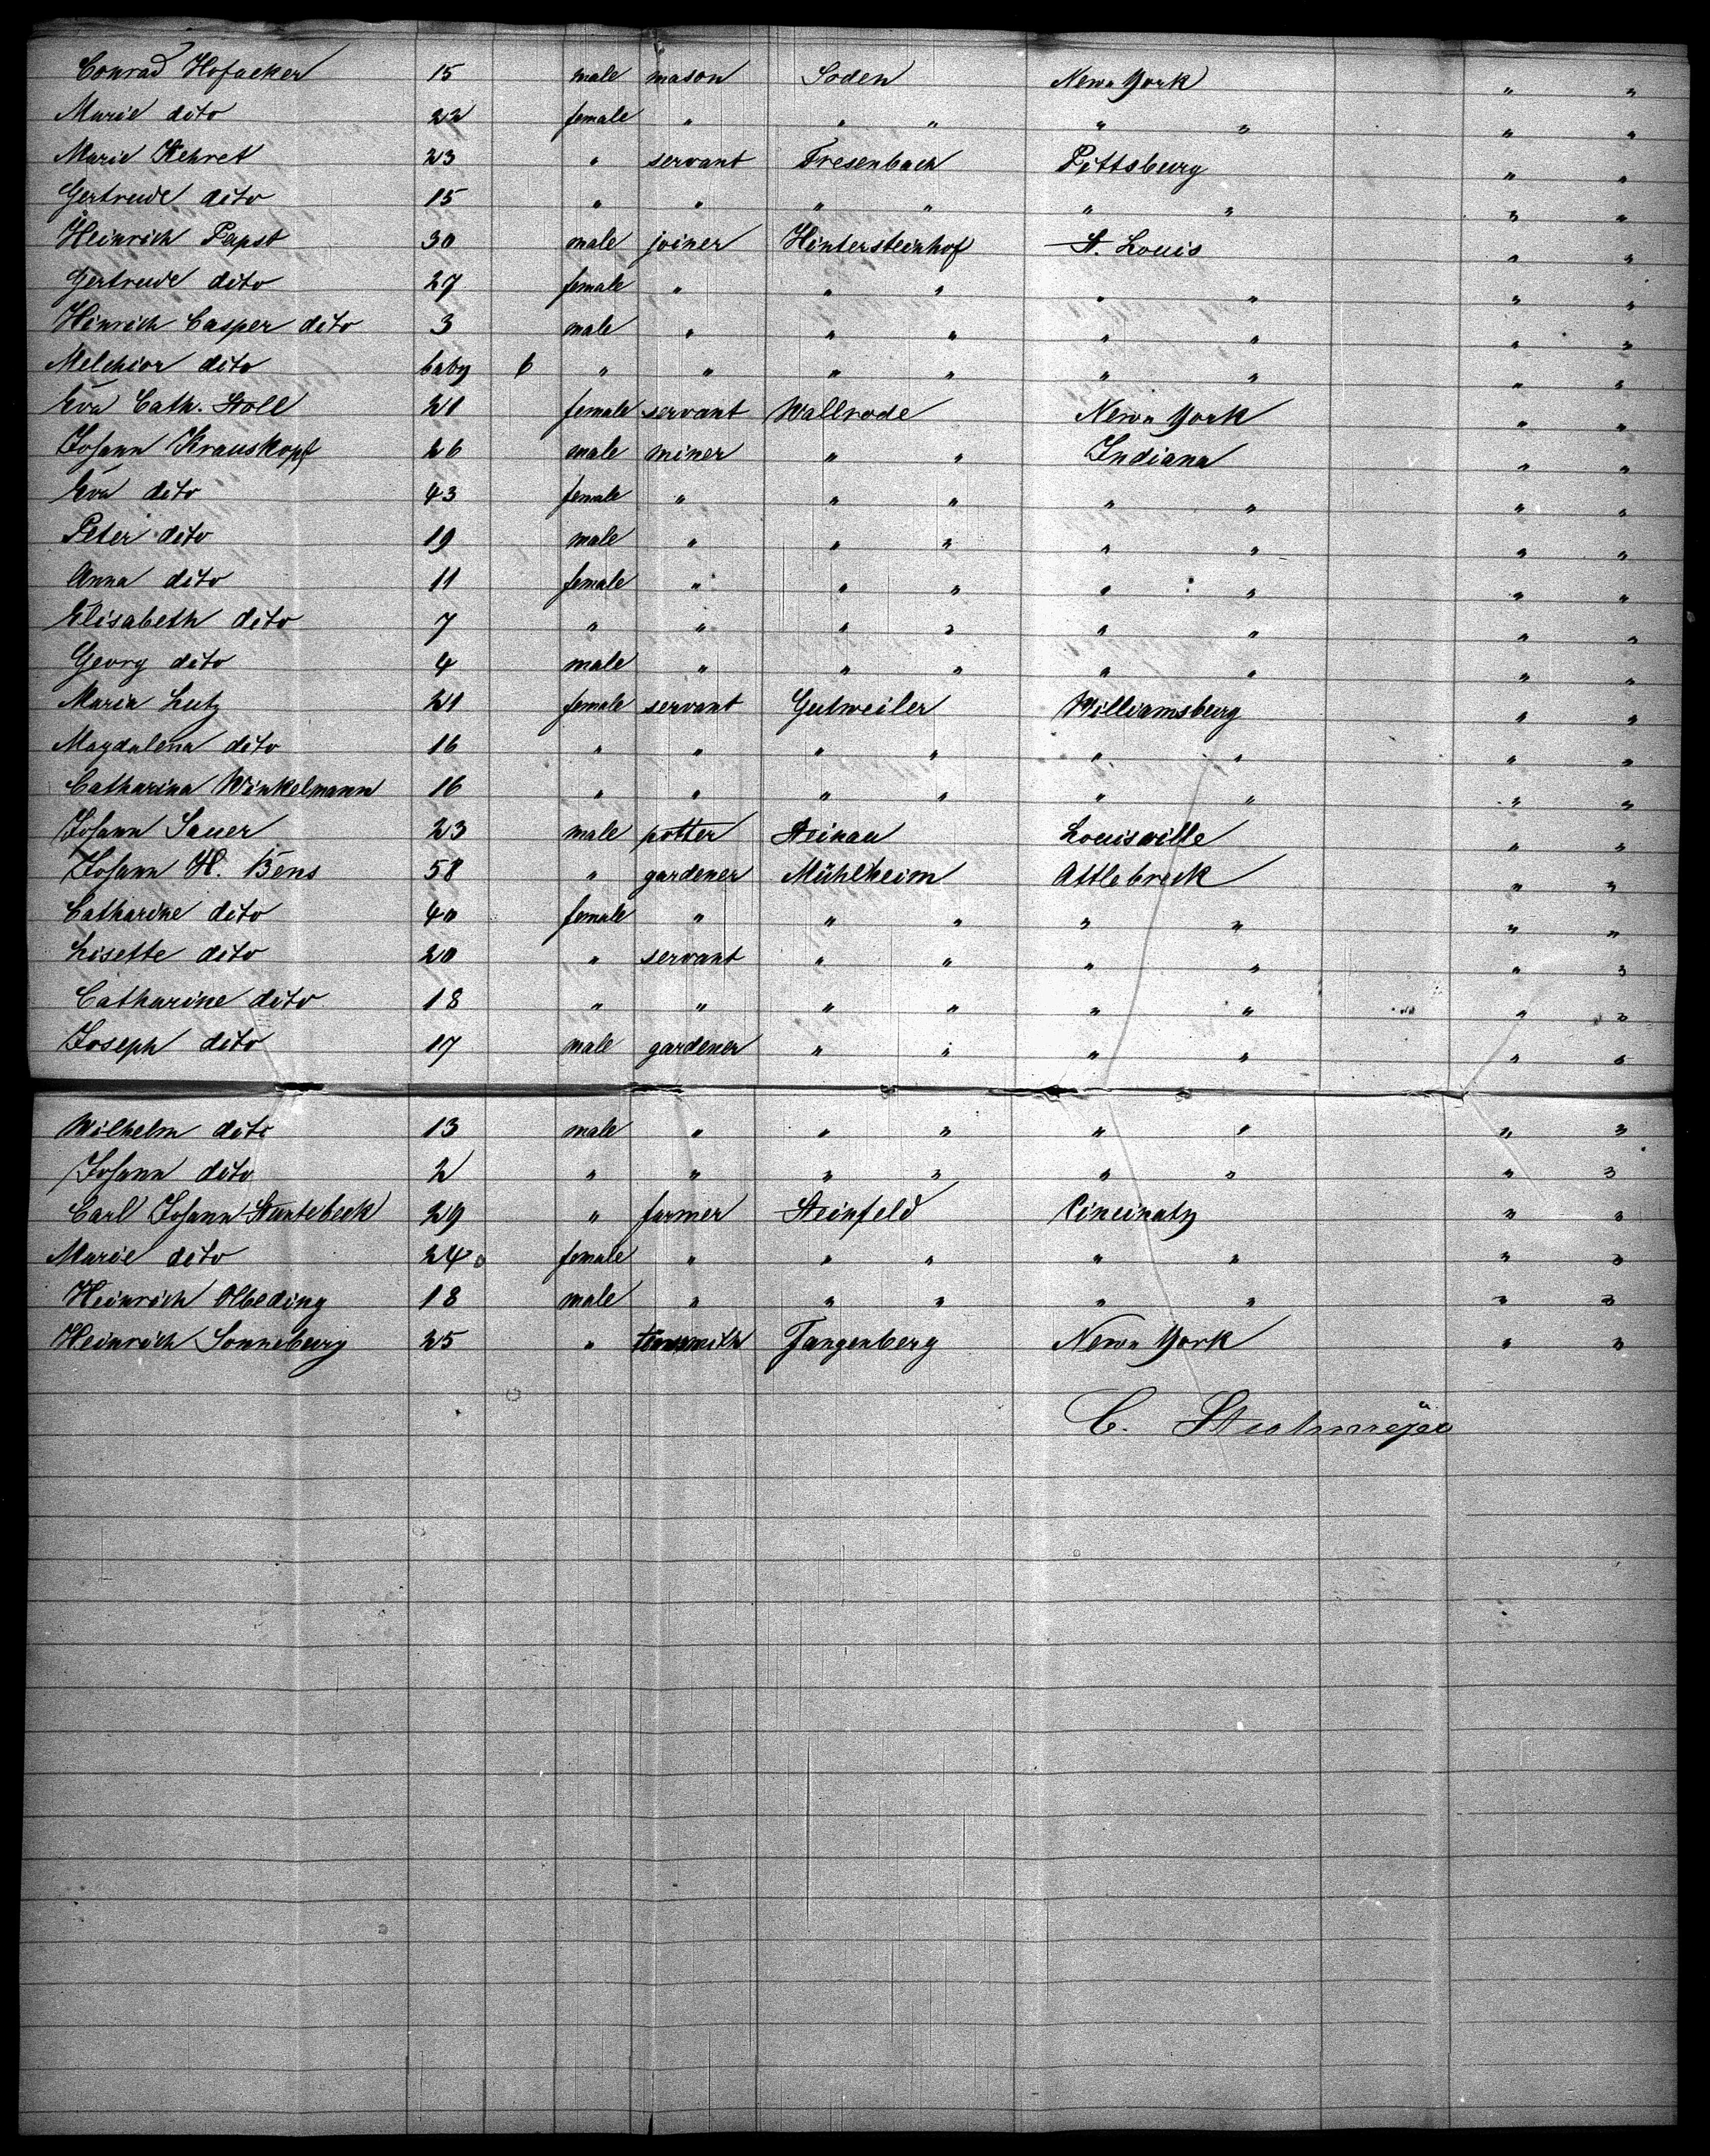 Conrad Hofacker 15 male mason Soden New York " "
Marie dito 22 female " " " " " " "
Marie Kehret 23 " servant Fresenbach Pittsburg " "
Gertrude dito 15 " " " " " " " "
Heinrich Papst 30 male joiner Hintersteinhof St. Louis " "
Gertrude dito 27 female " " " " " " "
Hinrich Casper dito 3 male " " " " " " "
Melchior dito baby 6 " " " " " " " "
Eva Cath. Stoll 21 female servant Wallrode New York " "
Johann Krauskopf 26 male miner " " Indiana " "
Eva dito 43 female " " " " " " "
Peter dito 19 male " " " " " " "
Anna dito 11 female " " " " " " "
Elisabeth dito 7 " " " " " " " "
Georg dito 4 male " " " " " " "
Maria Lutz 21 female servant Gutweiler Williamsburg " "
Magdalena dito 16 " " " " " " " "
Catharina Winkelmann 16 " " " " " " " "
Johann Sauer 23 male potter Steinau Louisville " "
Johann H. Bens 58 " gardener Mühlheim Attlebreck " "
Catharine dito 40 female " " " " " " "
Lisette dito 20 " servant " " " " " "
Catharine dito 18 " " " " " " " "
Joseph dito 17 male gardener " " " " " "
Wilhelm dito 13 male " " " " " " "
Johann dito 2 " " " " " " " "
Carl Johann Stuntebeck 29 " farmer Steinfeld Cincinaty " "
Marie dito 24 female " " " " " " "
Heinrich Olbeding 18 male " " " " " " "
Heinrich Sonneburg 25 " tinsmith Tangenberg New York " "
C.